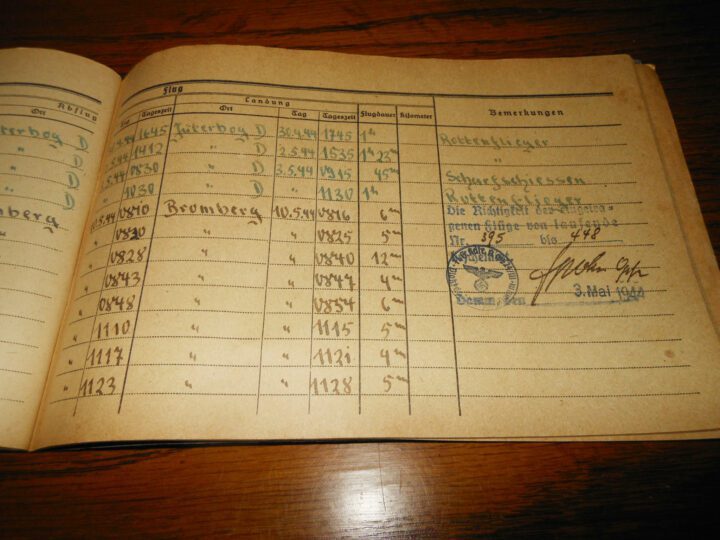 Flug
Abflug Landung
Ort Tag Tageszeit Ort Tag Tageszeit Flugdauer Kilometer Bemerkungen
terbog D 1645 Jüterbog D 30.4.44 1745 1h Rottenflieger
" D 1412 " D 2.5.44 1535 1h 23m "
" D 0830 " D 3.5.44 0915 45m Scharfschiessen
" D 1030 " D " 1130 1h Rottenflieger
mberg 10.5.44 0810 Bromberg 10.5.44 0816 6m Die Richtigkeit der eingetra-
" " 0820 " " 0825 5m genen Flüge von laufende
" 0828 " " 0840 12m Nr. 395 bis 448
" 0843 " " 0847 4m
" 0848 " " 0854 6m den 3. Mai 1944
" 1110 " " 1115 5m
" 1117 " " 1121 4m
" 1123 " " 1128 5m